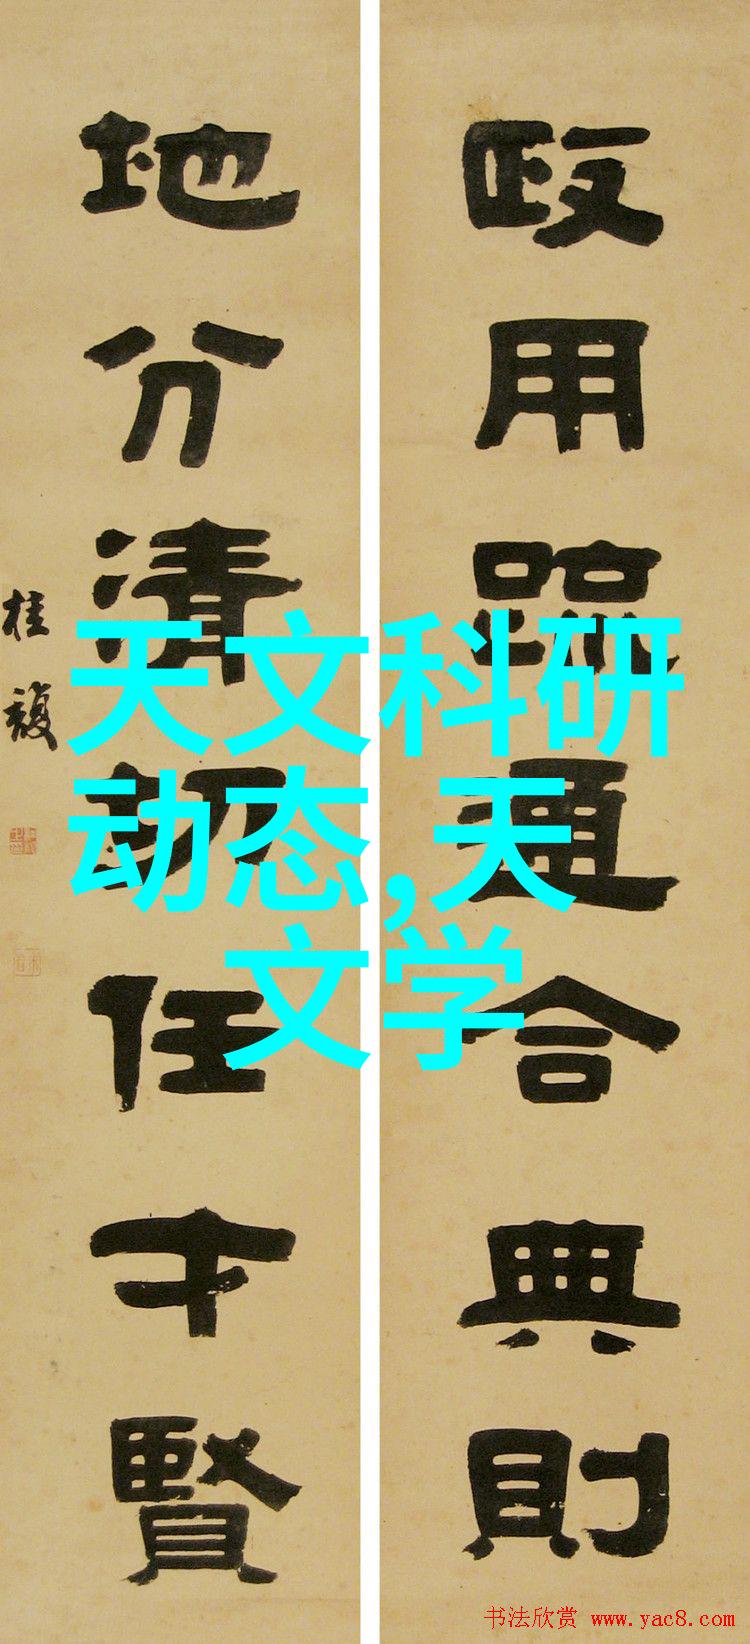 政用疏通合典則
地分清切任才賢
桂馥
天文科研
动态,天
文学
书法欣赏 www.yac8.com